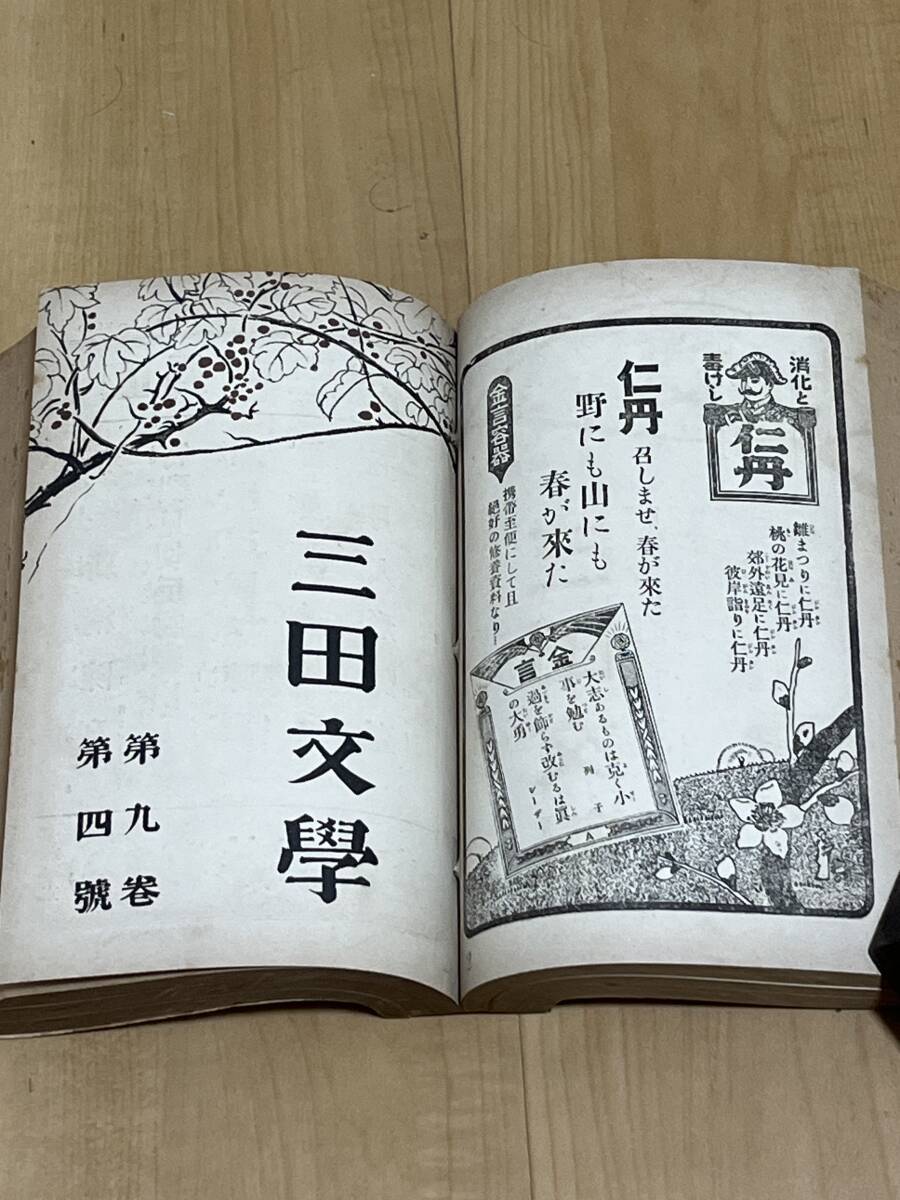 消化と
毒けし
仁丹
雛まつりに仁丹
桃の花見に仁丹
郊外遠足に仁丹
彼岸詣りに仁丹
仁丹 召しませ、春が來た
野にも山にも
春が來た
金言容器
携帯至便にして且
絕好の修養資料なり…
金言
大志あるものは克く小
事を勉む
過を飾らず改むるは眞
の大勇
レーデー
A
三田文學
第九卷
第四號